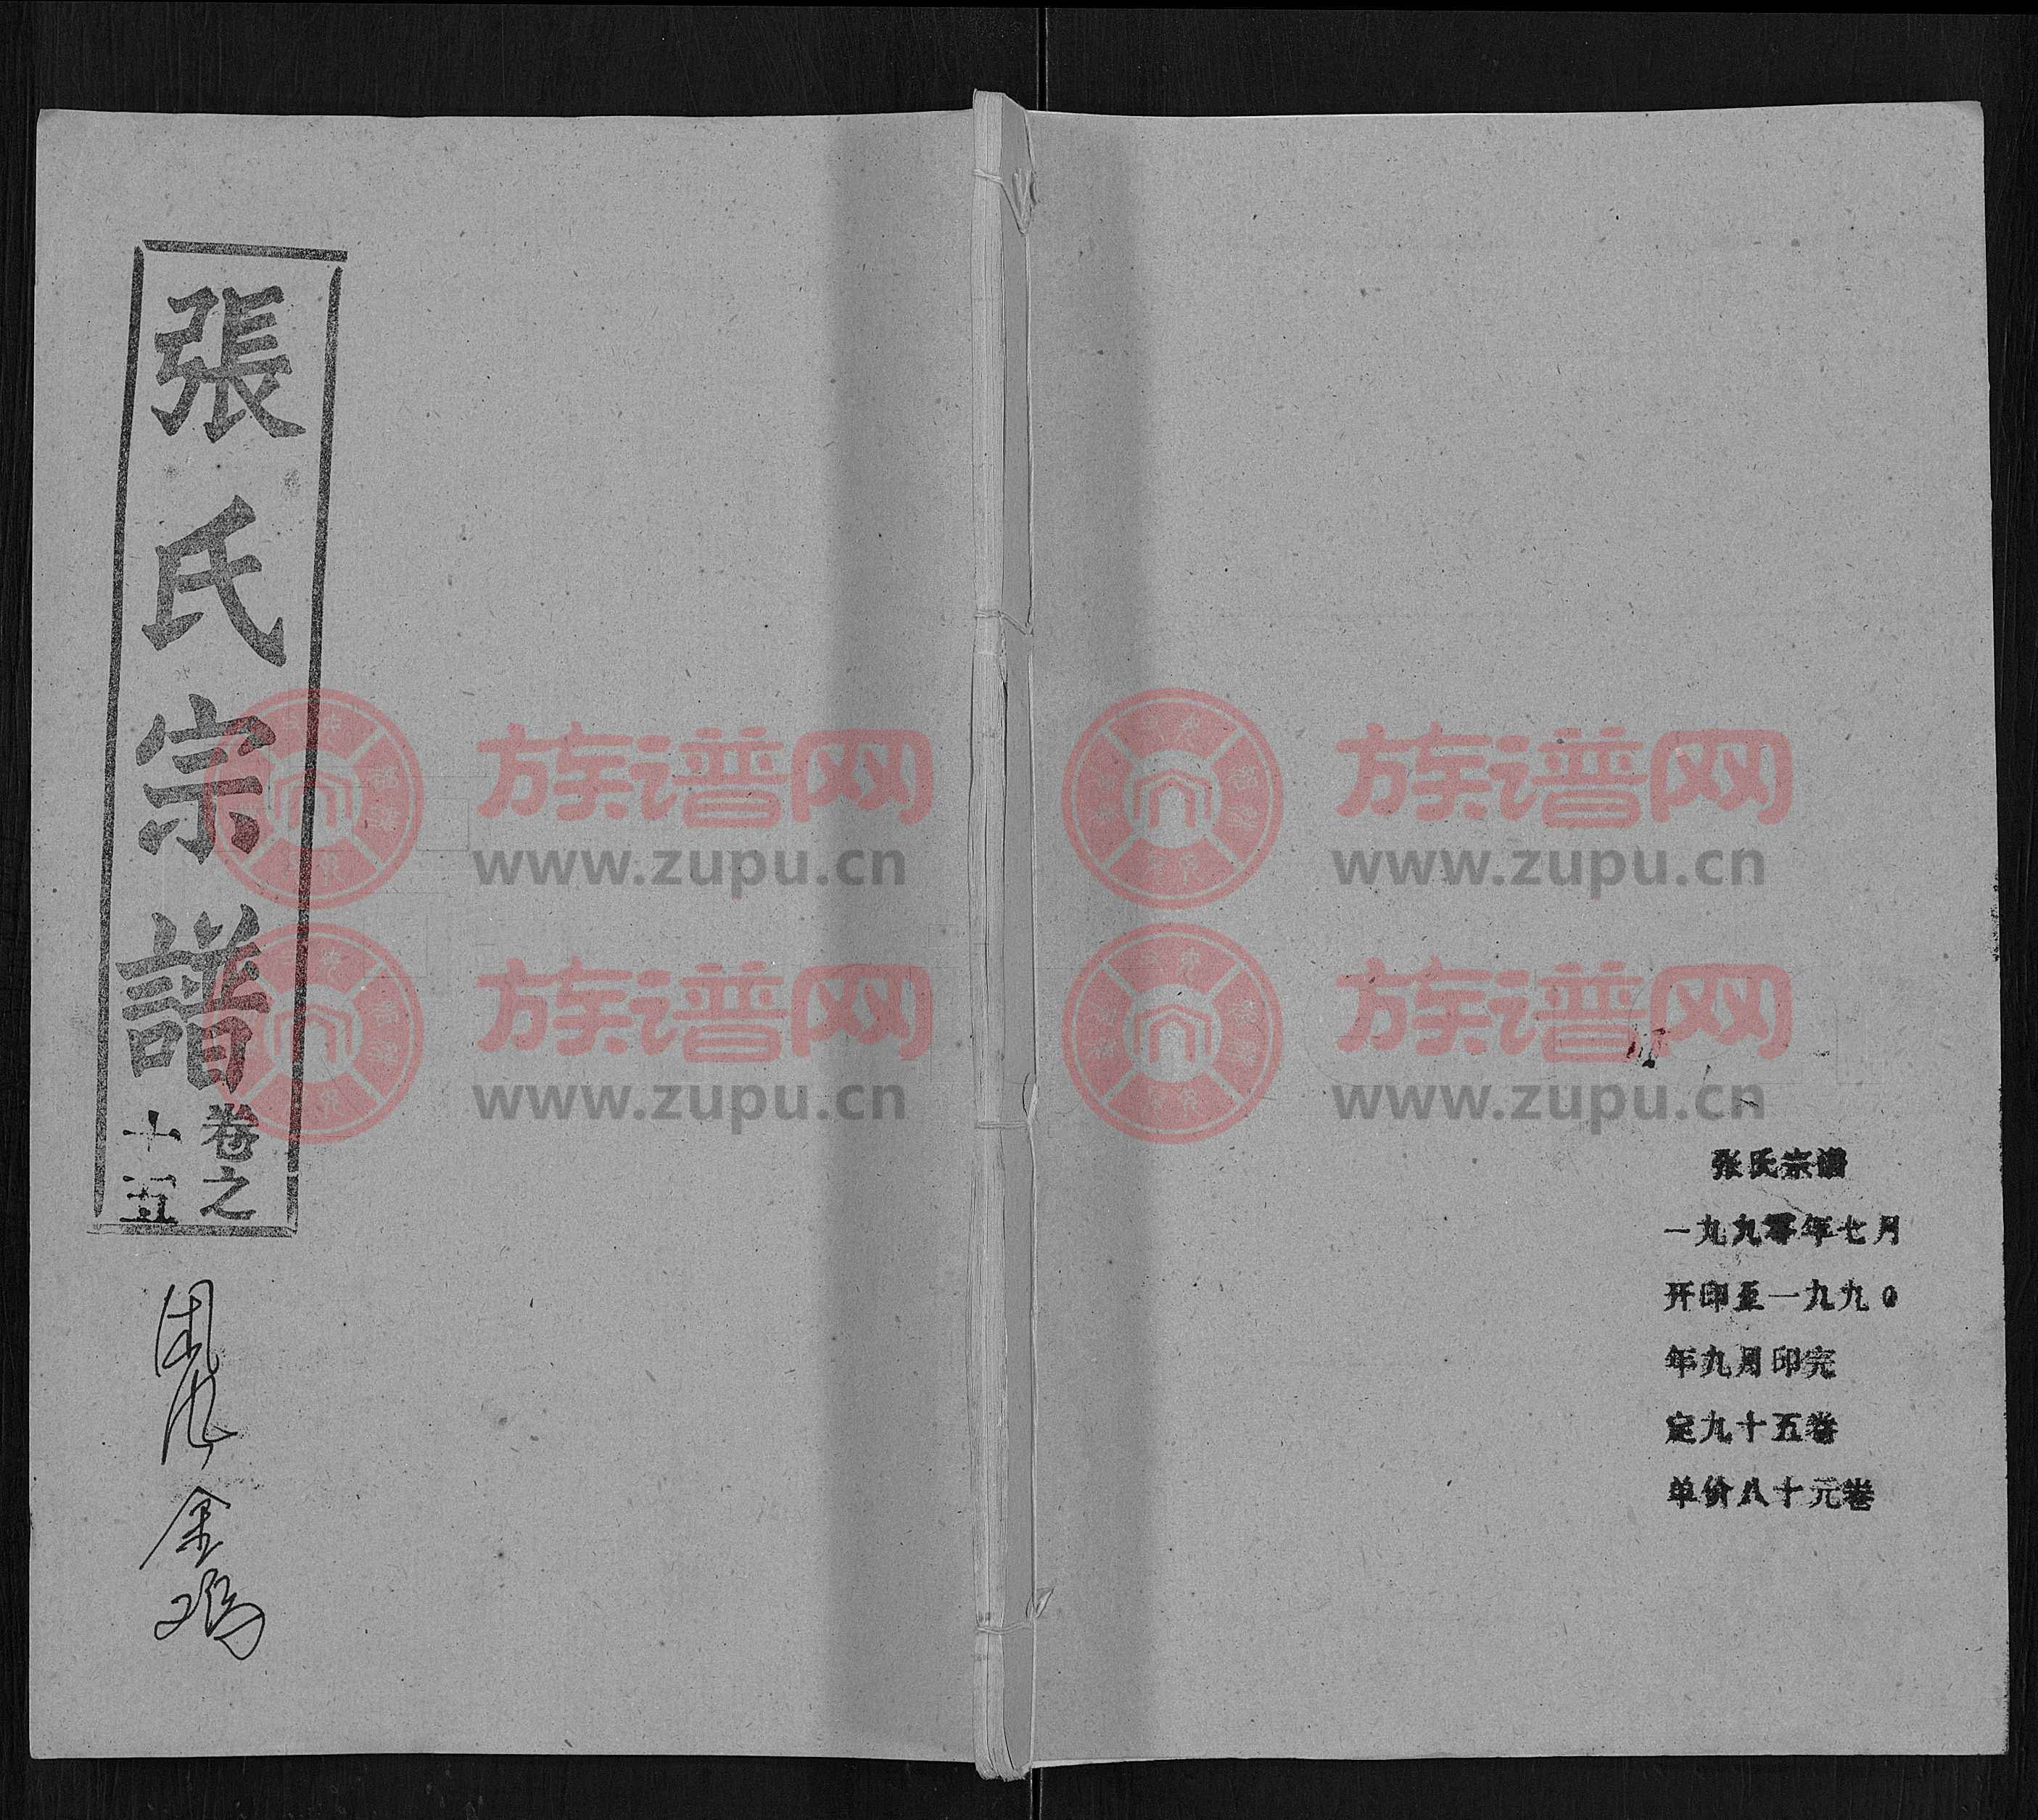 張氏宗譜
卷之
十五
金鸡
张氏宗谱
一九九零年七月
开印至一九九0
年九月印完
定九十五卷
单价八十元卷
族谱网
www.zupu.cn
族谱网
www.zupu.cn
族谱网
www.zupu.cn
族谱网
www.zupu.cn